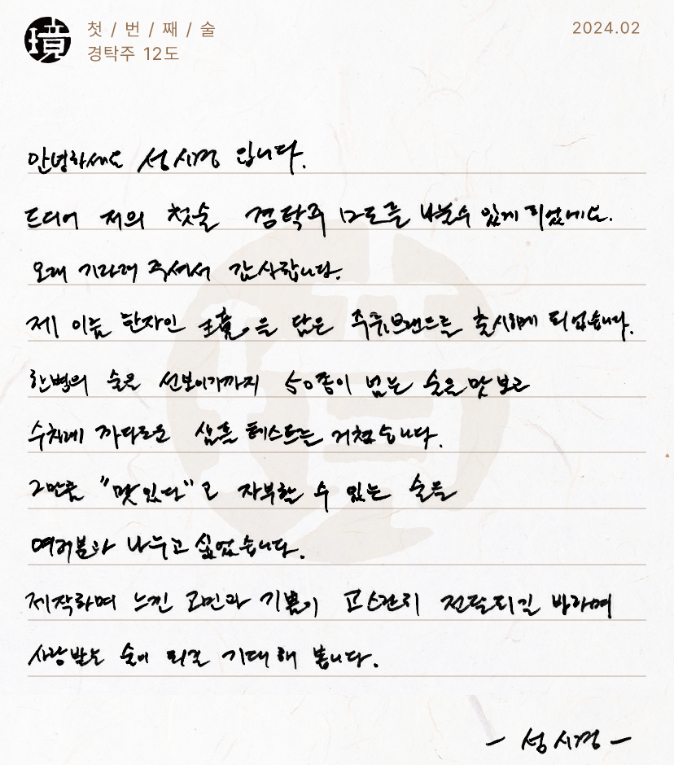 境
첫 / 번 / 째 / 술
경탁주 12도
2024.02
안녕하세요 성시경 입니다.
드디어 저의 첫술 경탁주 12도를 나눌수 있게 되었네요.
오래 기다려 주셔서 감사합니다.
제 이름 한자인 璄을 담은 주류브랜드를 출시하게 되었습니다.
한병의 술을 선보이기까지 50종이 넘는 술을 맛보고
수차례 까다로운 샘플 테스트를 거쳤습니다.
그만큼 "맛있다"고 자부할 수 있는 술을
여러분과 나누고 싶었습니다.
제작하며 느낀 고민과 기쁨이 고스란히 전달되길 바라며
사랑받는 술이 되길 기대해 봅니다.
– 성시경 –